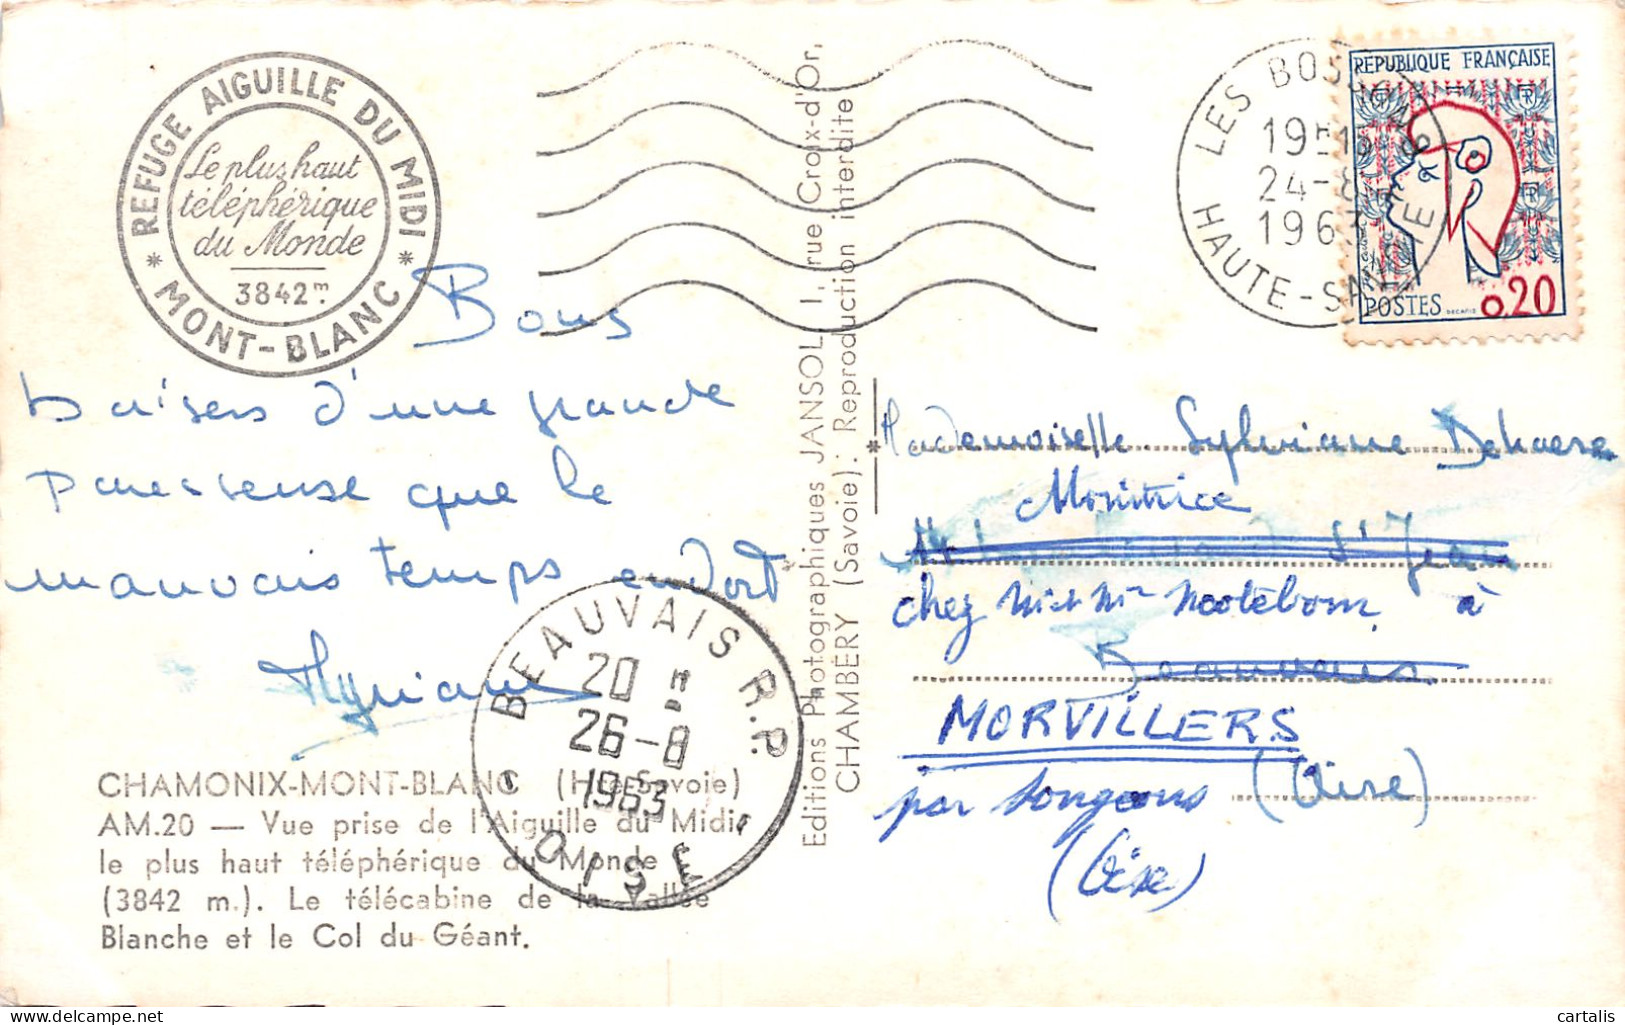 REFUGE AIGUILLE DU MIDI
* MONT-BLANC *
Le plus haut
téléphérique
du Monde
3842 m.
Bons
baisers d'une grande
paresseuse que le
mauvais temps endort
CHAMONIX-MONT-BLANC (Hte-Savoie)
AM.20 — Vue prise de l'Aiguille du Midi,
le plus haut téléphérique du Monde
(3842 m.). Le télécabine de la Vallée
Blanche et le Col du Géant.
BEAUVAIS R.P.
20 H
26-8
1963
OISE
Editions Photographiques JANSOL, 1, rue Croix-d'Or,
CHAMBÉRY (Savoie). Reproduction interdite
LES BOS
19H15
24-8
1963
HAUTE-SAVOIE
REPUBLIQUE FRANÇAISE
POSTES 0,20
DECARIS
Mademoiselle Sylviane Dehaese
Monitrice
St Jean
chez Mr et Mme Nootebom à
Beauvais
MORVILLERS
par Songeons (Oise)
(Oise)
cartalis
www.delcampe.net